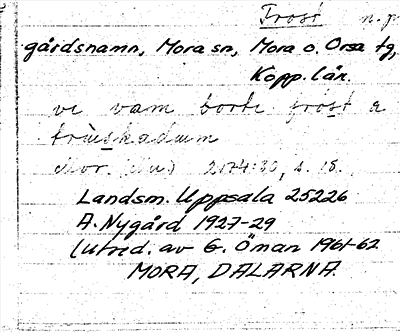 Frost n.pr
gårdsnamn, Mora sn, Mora o. Orsa tg,
Kopp. län.
ve vam borti frost a
2174:30, s. 18.
Landsm. Uppsala 25226
A. Nygård 1927-29
(utred. av E. Öman 1961-62
MORA, DALARNA